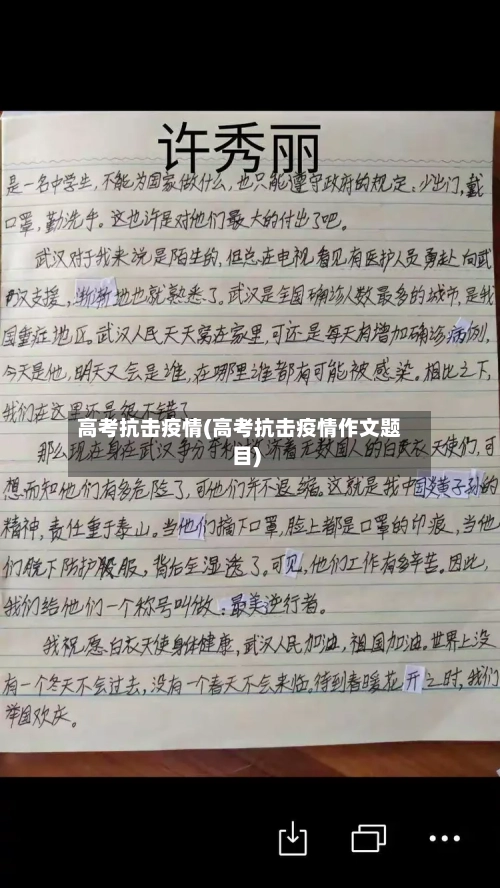 许秀丽
是一名中学生，不能为国家做什么，也只能遵守政府的规定：少出门，戴
口罩，勤洗手。这也许是对他们最大的付出了吧。
武汉对于我来说是陌生的，但总在电视看见有医护人员勇赴向武
汉支援，渐渐地也就熟悉了。武汉是全国确诊人数最多的城市，是我
国重症地区。武汉人民天天窝在家里，可还是每天有增加确诊病例，
今天是他，明天又会是谁，在哪里谁都有可能被感染。相比之下，
我们在这里还是很不错了
高考抗击疫情(高考抗击疫情作文题
目)
那么现在身在武汉争分夺秒 着无数国人的白衣天使们，可
想而知他们有多危险了，可他们并不退缩。这就是我中国炎黄子孙的
精神，责任重于泰山。当他们摘下口罩，脸上都是口罩的印痕，当他
们脱下防护服，背后全湿透了。可见，他们工作有多辛苦。因此，
我们给他们一个称号叫做：最美逆行者。
我祝愿白衣天使身体健康，武汉人民加油，祖国加油。世界上没
有一个冬天不会过去，没有一个春天不会来临。待到春暖花开之时，我们
举国欢庆。